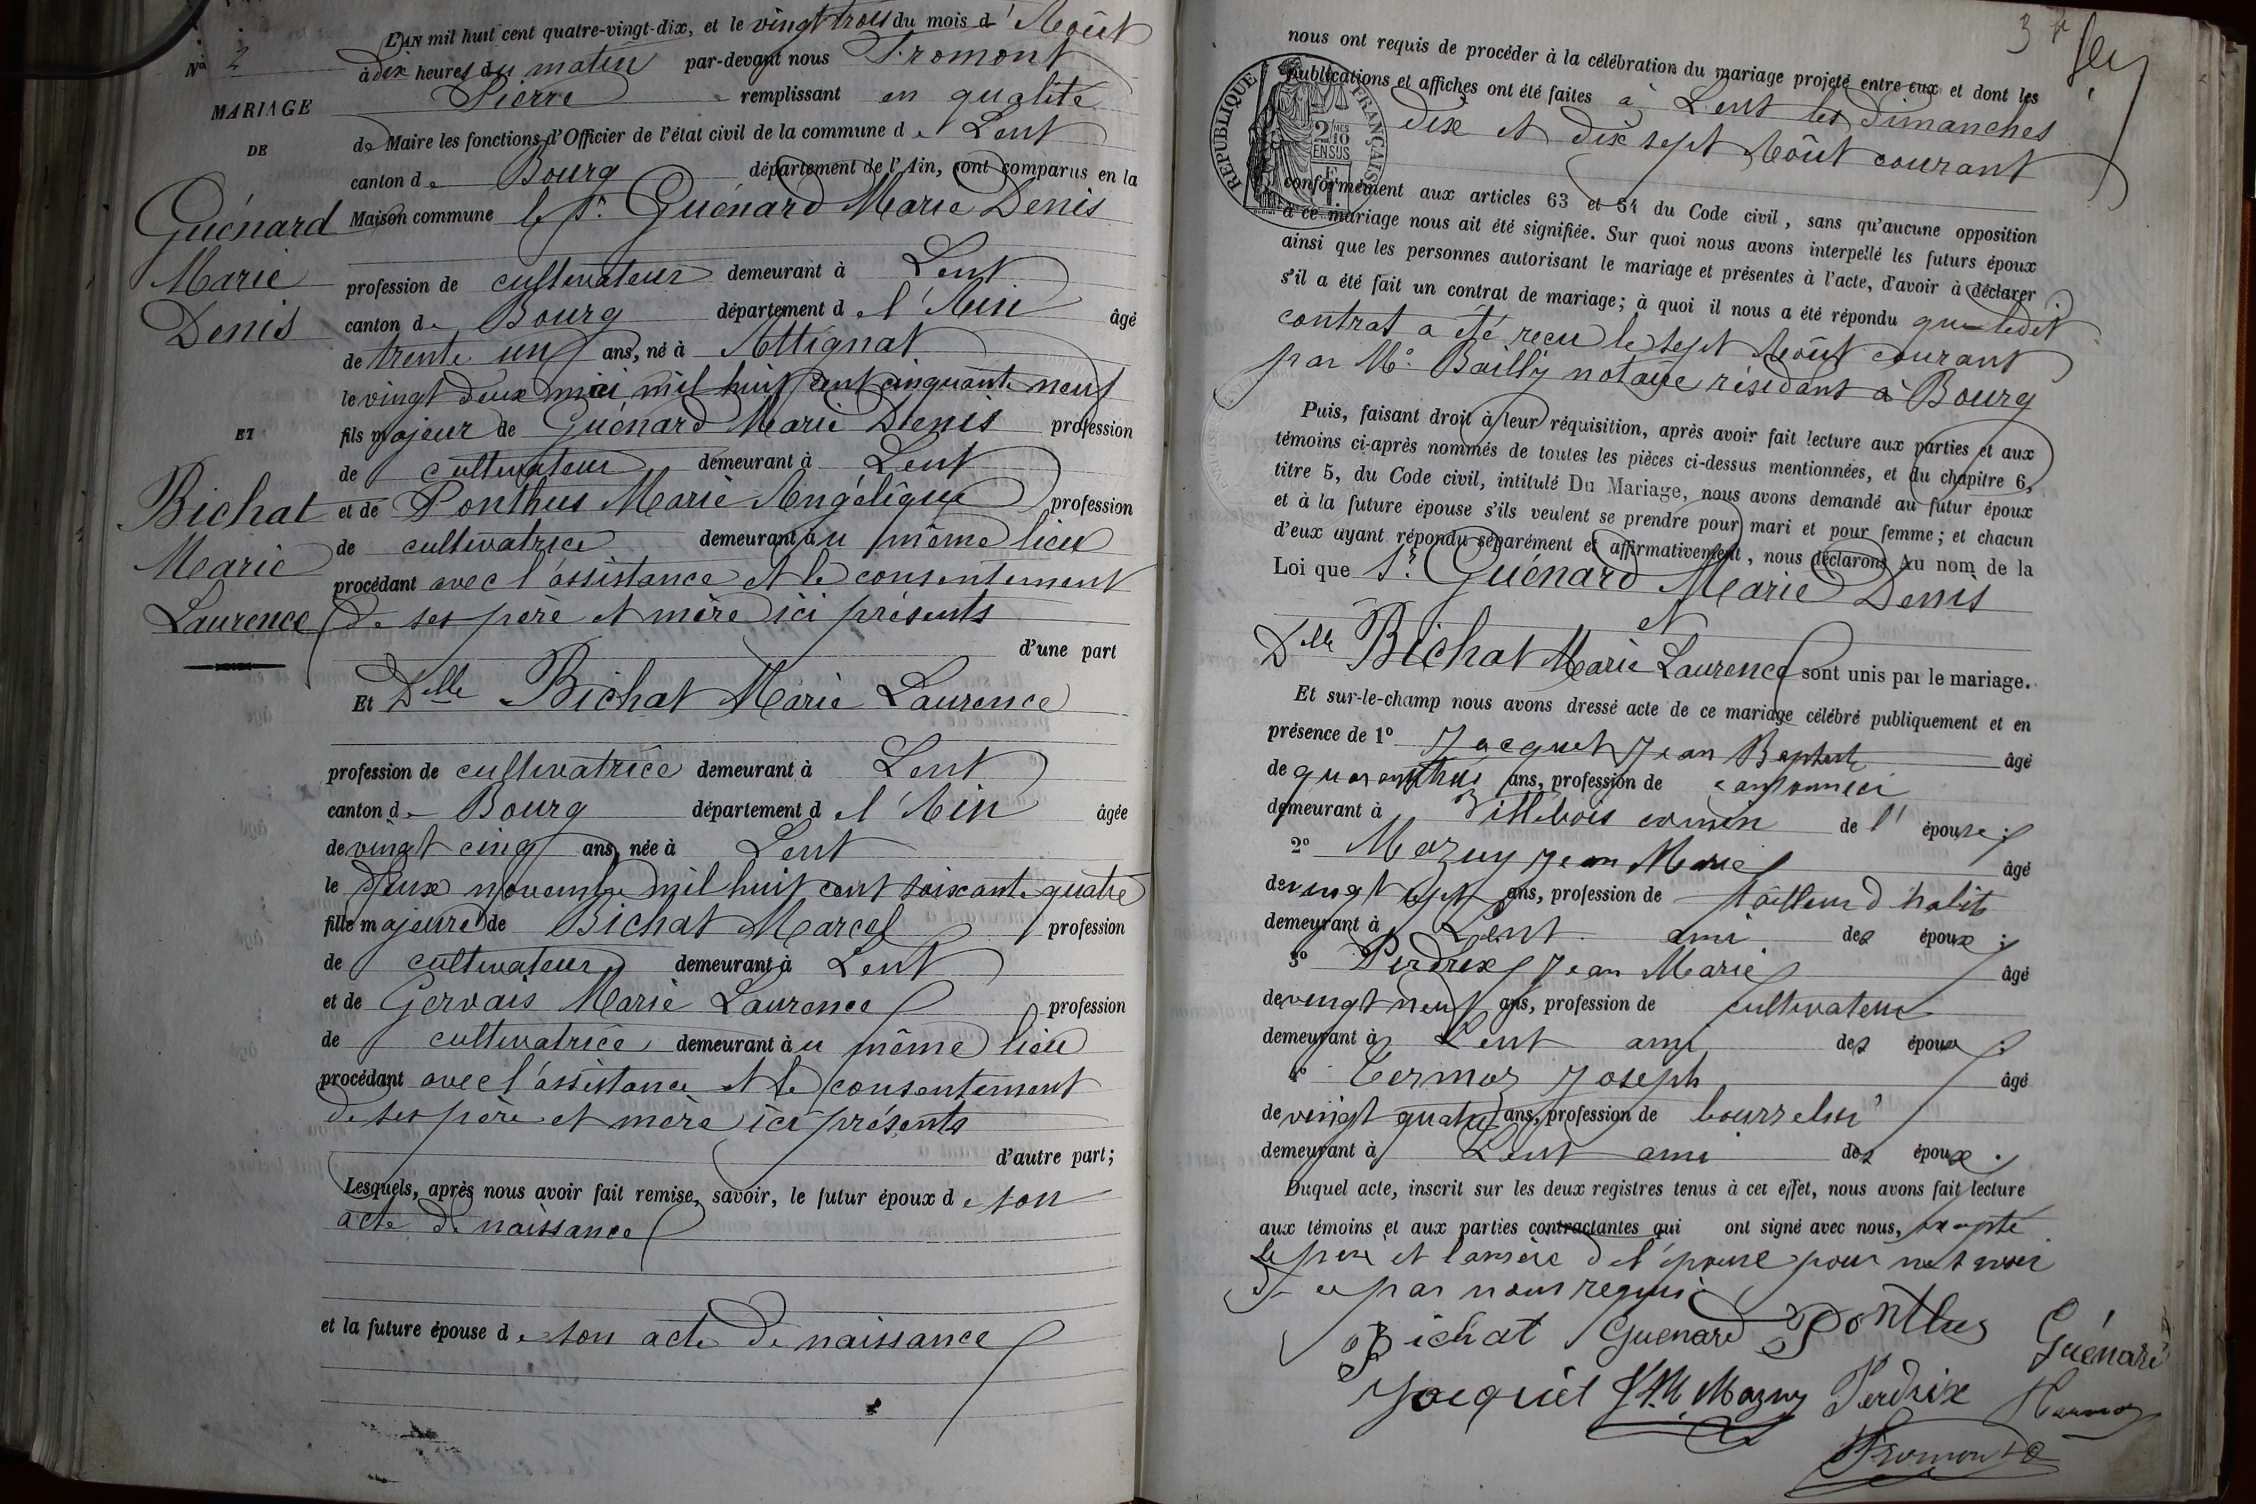 L'AN mil huit cent quatre-vingt-dix, et le vingt trois du mois d'Août
à dix heures du matin par-devant nous Fromont
Pierre remplissant en qualité
de Maire les fonctions d'Officier de l'état civil de la commune de Lent
canton de Bourg département de l'Ain, sont comparus en la
Maison commune le Sr. Guénard Marie Denis
profession de cultivateur demeurant à Lent
canton de Bourg département de l'Ain âgé
de trente un ans, né à Attignat
le vingt deux mai mil huit cent cinquante neuf
fils majeur de Guénard Marie Denis profession
de cultivateur demeurant à Lent
et de Ponthus Marie Angélique profession
de cultivatrice demeurant au même lieu
procédant avec l'assistance et le consentement
de ses père et mère ici présents
d'une part
Et Delle Bichat Marie Laurence
profession de cultivatrice demeurant à Lent
canton de Bourg département de l'Ain âgée
de vingt cinq ans, née à Lent
le deux novembre mil huit cent soixante quatre
fille majeure de Bichat Marcel profession
de cultivateur demeurant à Lent
et de Gervais Marie Laurence profession
de cultivatrice demeurant au même lieu
procédant avec l'assistance et le consentement
de ses père et mère ici présents
d'autre part;
Lesquels, après nous avoir fait remise, savoir, le futur époux de son
acte de naissance
et la future épouse de son acte de naissance
No 2
MARIAGE
DE
Guénard
Marie
Denis
ET
Bichat
Marie
Laurence
3
nous ont requis de procéder à la célébration du mariage projeté entre eux et dont les
publications et affiches ont été faites à Lent les dimanches
dix et dix sept Août courant
RÉPUBLIQUE FRANÇAISE
2/10 MES
EN SUS
conformément aux articles 63 et 64 du Code civil, sans qu'aucune opposition
à ce mariage nous ait été signifiée. Sur quoi nous avons interpellé les futurs époux
ainsi que les personnes autorisant le mariage et présentes à l'acte, d'avoir à déclarer
s'il a été fait un contrat de mariage; à quoi il nous a été répondu que ledit
contrat a été reçu le sept Août courant
par Me. Bailly notaire résidant à Bourg
Puis, faisant droit à leur réquisition, après avoir fait lecture aux parties et aux
témoins ci-après nommés de toutes les pièces ci-dessus mentionnées, et du chapitre 6,
titre 5, du Code civil, intitulé Du Mariage, nous avons demandé au futur époux
et à la future épouse s'ils veulent se prendre pour mari et pour femme; et chacun
d'eux ayant répondu séparément et affirmativement, nous déclarons Au nom de la
Loi que Sr. Guénard Marie Denis
et
Delle Bichat Marie Laurence sont unis par le mariage.
Et sur-le-champ nous avons dressé acte de ce mariage célébré publiquement et en
présence de 1º Jacquet Jean Baptiste âgé
de ans, profession de cantonnier
demeurant à Villebois cousin de l'épouse;
2º Mazuy Jean Marie âgé
de vingt sept ans, profession de tailleur d'habits
demeurant à Lent ami des époux;
3º Perdrix Jean Marie âgé
de vingt neuf ans, profession de cultivateur
demeurant à Lent ami des époux;
4º Termoz Joseph âgé
de vingt quatre ans, profession de bourrelier
demeurant à Lent ami des époux.
Duquel acte, inscrit sur les deux registres tenus à cet effet, nous avons fait lecture
aux témoins et aux parties contractantes qui ont signé avec nous, excepté
le père et la mère de l'épouse pour ne savoir
de ce par nous requis
Bichat Guenard Ponthus Guénard
Jacquet J.M. Mazuy Perdrix Termoz
Fromont